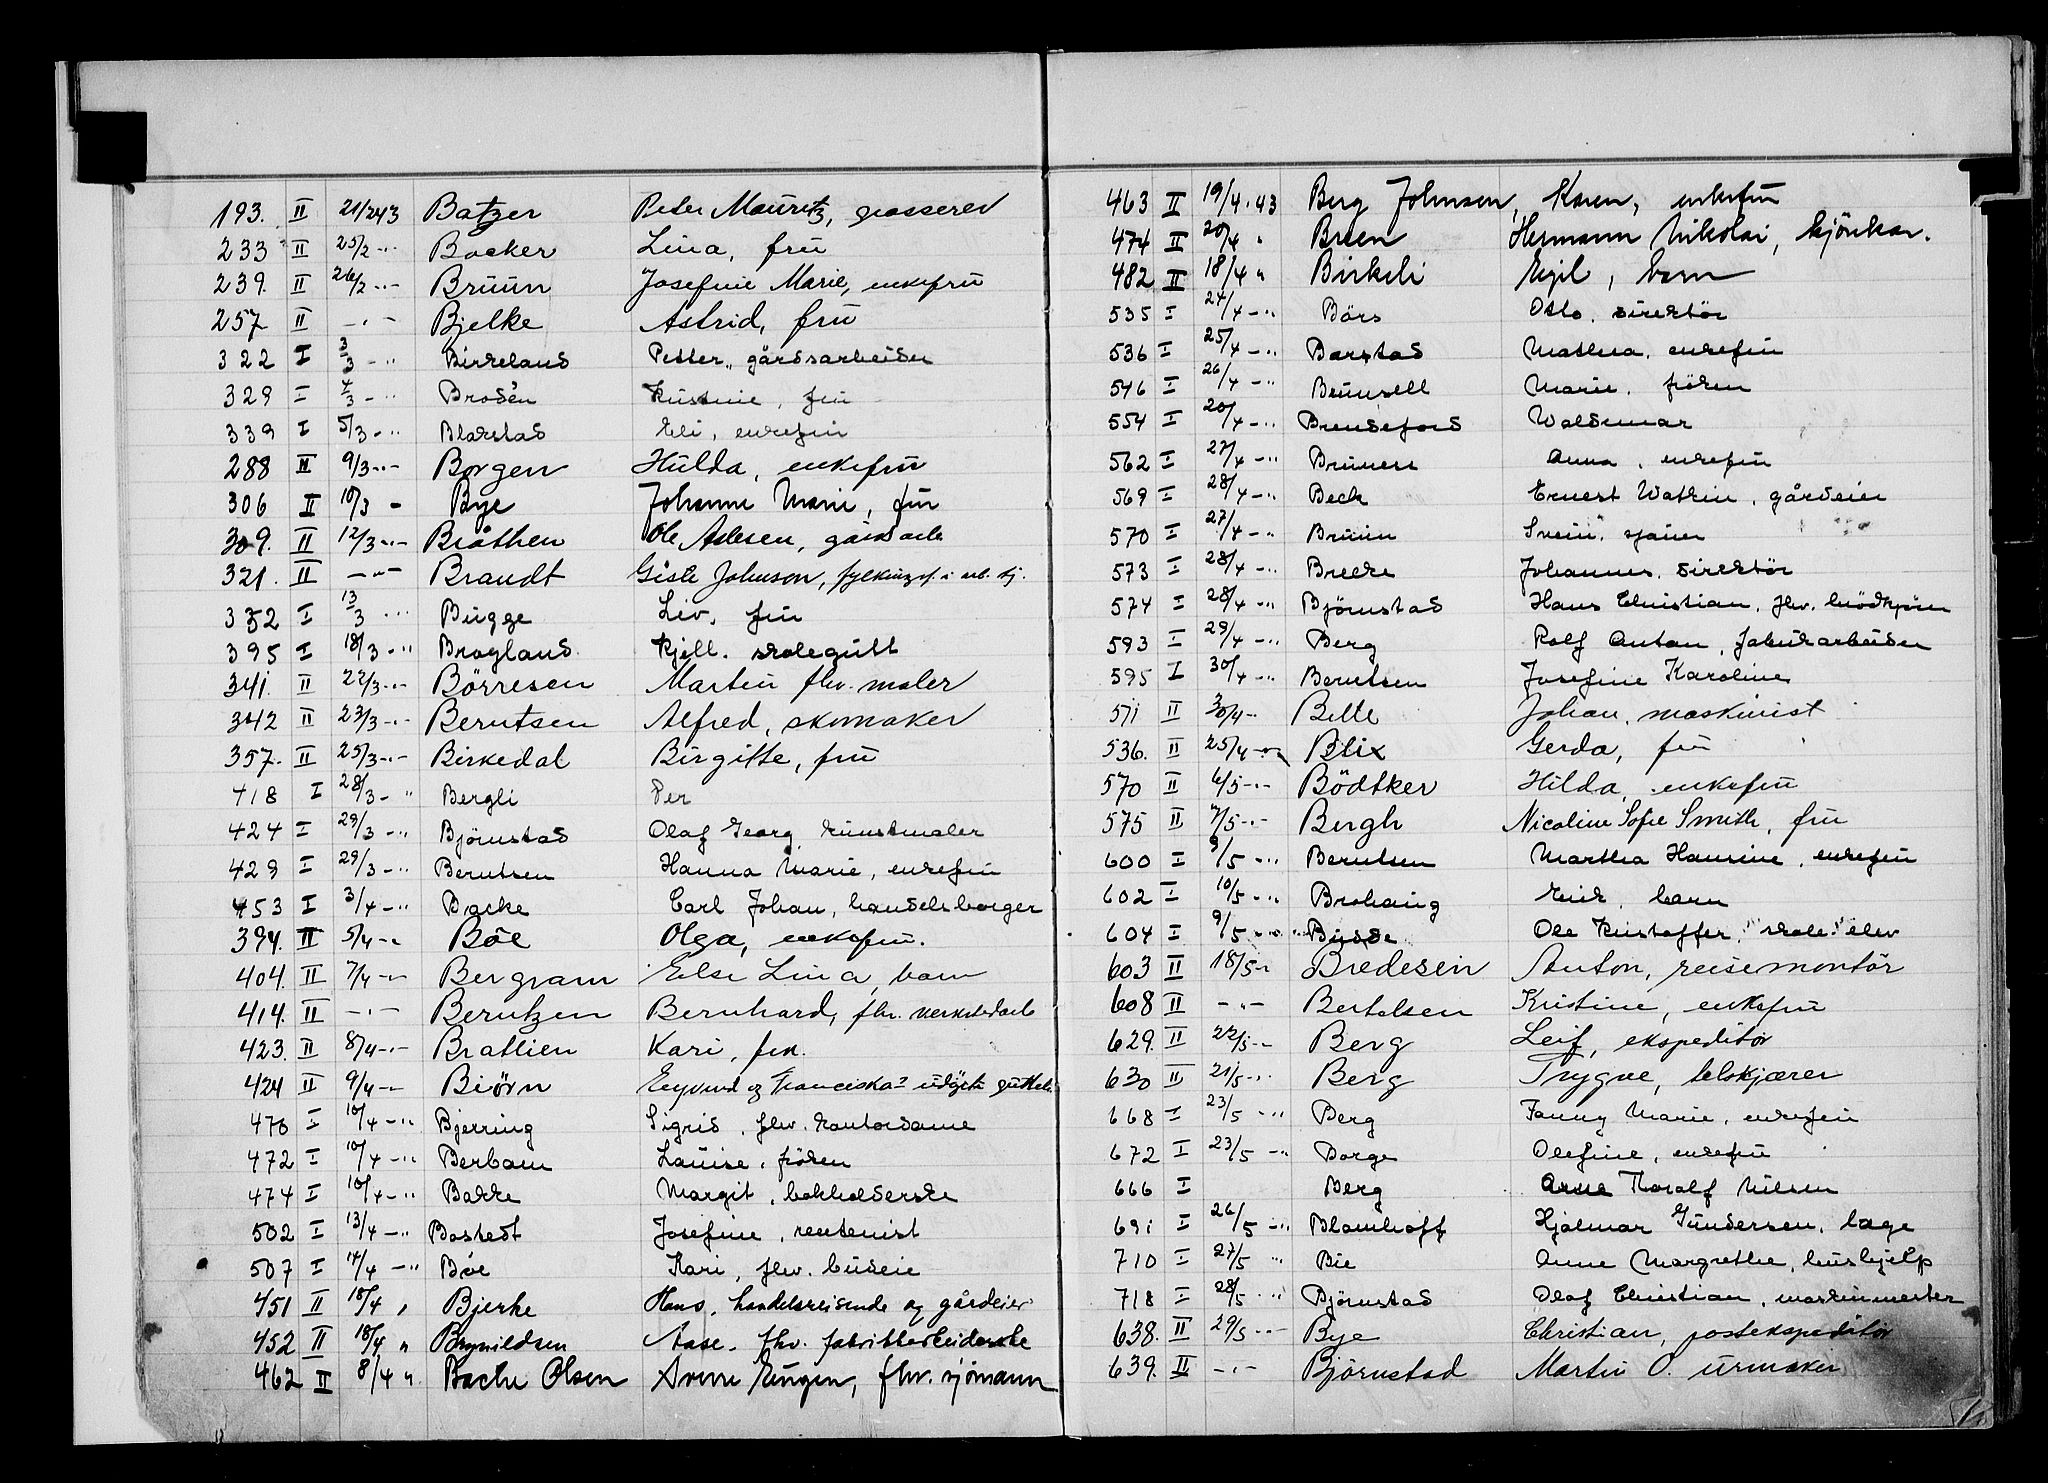 193. II 21/2 43 Batzer Peter Mauritz, passerer
233 II 25/2 -"- Backer Lina, frü
239. II 26/2 -"- Brüün Josefine Marie, enkefrü
257 II -"- Bjelke Astrid, frü
322 I 3/3 -" Birkeland Petter, gårdsarbeider
329 I 4/3 -" Brodén Kristine, frü
339 I 5/3 -" Blakstad Eli, enkefrü
288 II 9/3 -"- Borgen Hülda, enkefrü
306 II 10/3 " Bye Johanne Marie, frü
309. II 12/3 -"- Bråthen Ole Aslesen, gårdarb
321. II -"- Brandt Gisle Johnson, i arb. tj.
352 I 13/3 " Bügge Liv, frü
395 I 18/3 -" Brogland Kjell. skolegütt
341. II 22/3 -"- Börresen Martin fhv. maler
342 II 23/3 -"- Berntsen Alfred, skomaker
357. II 25/3 -"- Birkedal Birgitte, frü
418 I 28/3 -" Bergli Per
424 I 29/3 -" Björnstad Olaf Georg, künstmaler
429 I 29/3 -" Berntsen Hanna Marie, enkefrü
453 I 3/4 -" Backe Carl Johan, handelsborger
394. II 5/4 -" Böe Olga, enkefrü.
404. II 7/4 -" Bergram Else Lina, barn
414. II -"- Berntzen Bernhard, fhv. verkstedarb
423. II 8/4 -"- Bratlien Kari, frk.
424 II 9/4 -" Biörn Eyvind og Franciska's
470 I 10/4 -" Bjerring Sigrid, fhv. kontordame
472 I 10/4 -" Berbom Laüise, fröken
474 I 10/4 -" Bakke Margit, bokholderske
502 I 13/4 -" Bostedt Josefine, rentenist
507 I 14/4 -" Böe Kari, fhv. büdeie
451 II 18/4 " Bjerke Hans, handelsreisende og gårdeier
452 II 18/4 " Brynildsen Aase, fhv. fabrikkarbeiderske
462 II 8/4 " Bache Olsen Arne Eüngen, fhv. sjömann
463 II 19/4. 43 Berg Johnsen, Karen, enkefrü
474 II 20/4 " Breen Hermann Nikolai, kjönkar.
482 II 18/4 " Birkeli Egil, barn
535 I 24/4 -" Börs Otto, direktör
536 I 25/4 -" Barstad Mathea, enkefrü
546 I 26/4 -" Marie, fröken
554 I 20/4 -" Brendsfjord Waldemar
562 I 27/4 -" Brünen Anna, enkefrü
569 I 28/4 -" Beck Ernest Watkin, gårdeier
570 I 27/4 -" Brüün Svein,
573 I 28/4 -" Brecke Johannes, direktör
574 I 28/4 -" Björnstad Hans Christian, fhv. brödkjörer
593 I 29/4 -" Berg Rolf Anton, fabrikarbeider
595 I 30/4 -" Berntsen Josefine Karoline
571 II 30/4 - Belle Johan, maskinist
536. II 25/4 -"- Blix Gerda, frü
570 II 6/5 -"- Bödtker Hilda, enkefrü
575 II 7/5 -"- Bergh Nicoline Sofie Smith, frü
600 I 9/5 -" Berntsen Martha Hansine, enkefrü
602 I 10/5 -" Brohaüg Erik, barn
604 I 9/5 -" Büdde Ole Kristoffer, skole elev
603 II 18/5 -" Bredesen Anton, reisemontör
608 II -"- Bertelsen Kristine, enkefrü
629. II 22/5 -" Berg Leif, ekspeditör
630 II 21/5 -" Berg Trygve, blskjærer
668 I 23/5 -" Berg Fanny Marie, enkefrü
672 I 23/5 -" Borge Olefine, enkefrü
666 I Berg Arne Thoralf Nilsen
691 I 26/5 -" Blomhoff Hjalmar Gündersen, lage
710 I 27/5 " Bie Anne Margrethe, hüshjelp
718 I 28/5 " Björnstad Olaf Christian, maskinmester
638. II 29/5 -" Bye Christian, postekspeditör
639. II -"- Björnstad Martin O. ürmaker